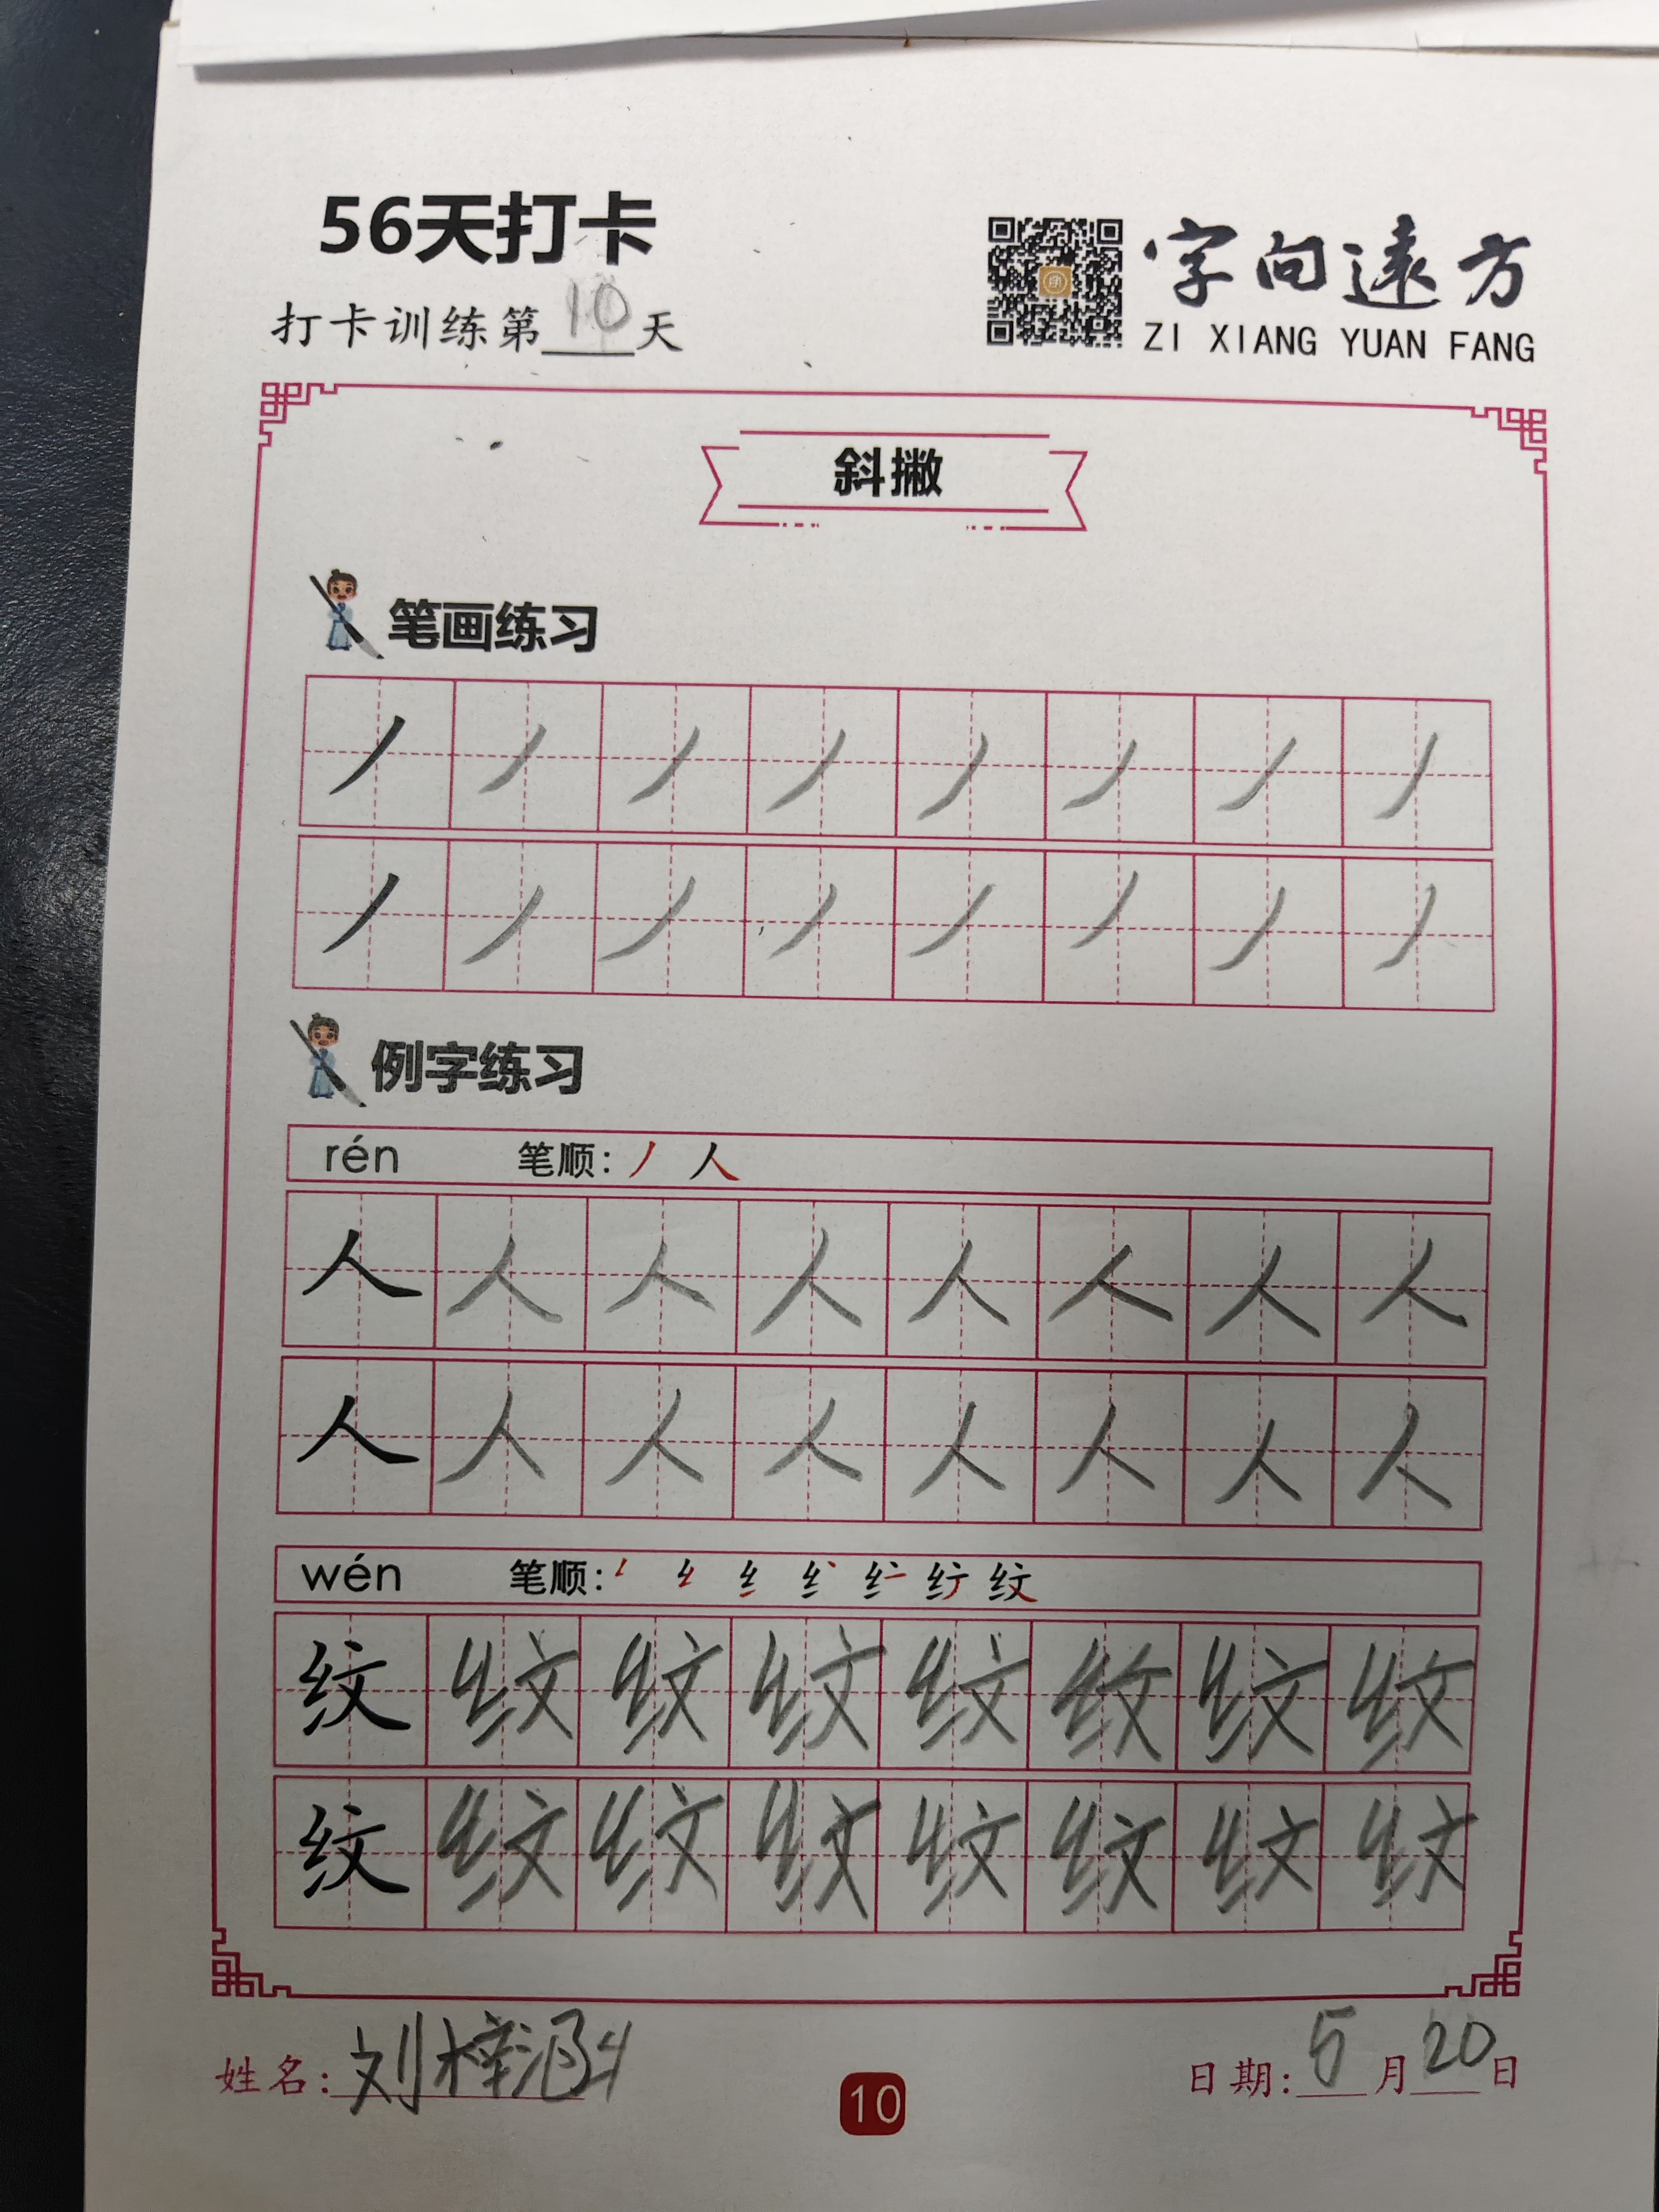 56天打卡
打卡训练第10天
字向远方
ZI XIANG YUAN FANG
斜撇
笔画练习
丿丿丿丿丿丿丿丿
丿丿丿丿丿丿丿丿
例字练习
rén 笔顺：丿 人
人人人人人人人人
人人人人人人人人
wén 笔顺：
纹纹纹纹纹纹纹纹
纹纹纹纹纹纹纹纹
姓名：刘梓涵
10
日期：5月20日